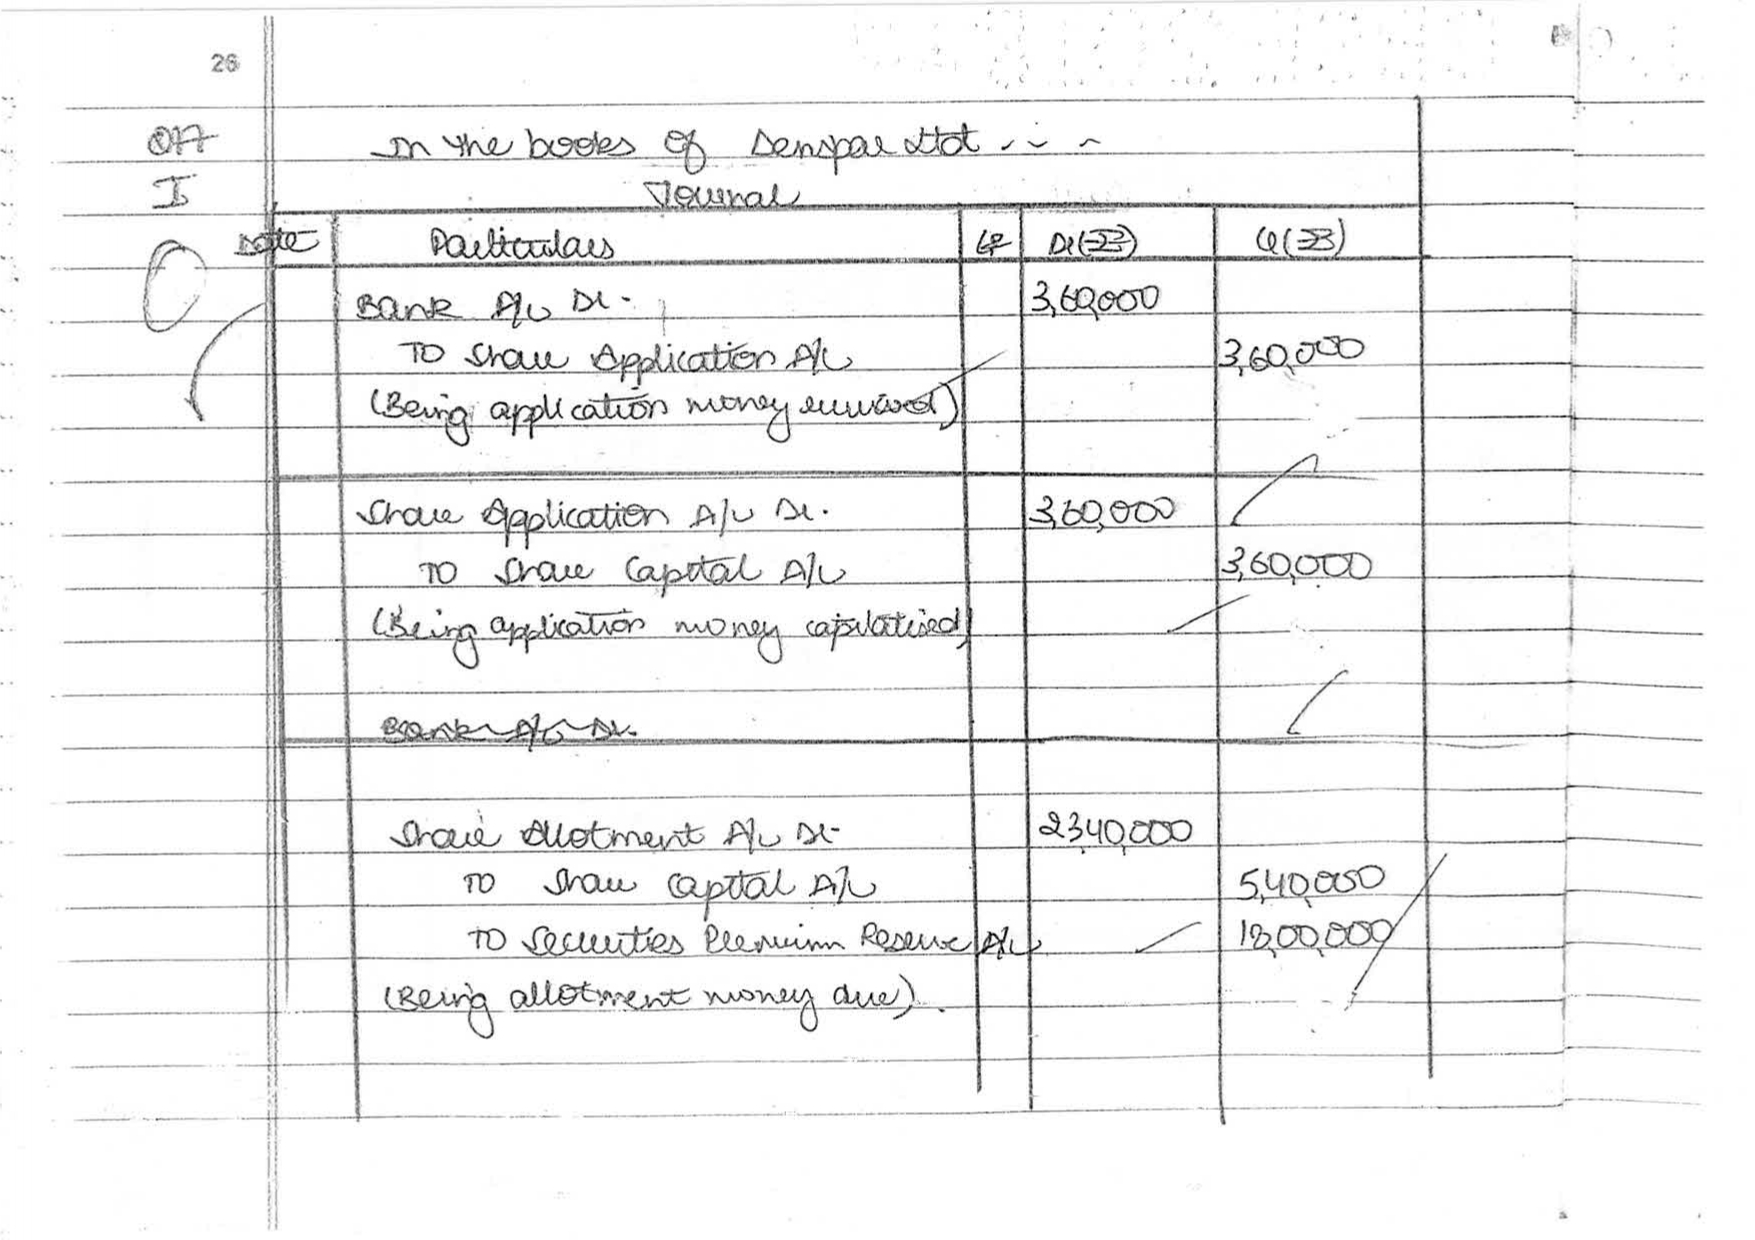 26
Q17 In the books of Denspar Ltd
I Journal
Date Particulars LF Dr(₹) Cr(₹)
Bank A/c Dr. 3,60,000
To Share Application A/c 3,60,000
(Being application money received)
Share Application A/c Dr. 3,60,000
To Share Capital A/c 3,60,000
(Being application money capitalised)
Bank A/c Dr.
Share Allotment A/c Dr 23,40,000
To Share Capital A/c 5,40,000
To Securities Premium Reserve A/c 18,00,000
(Being allotment money due).